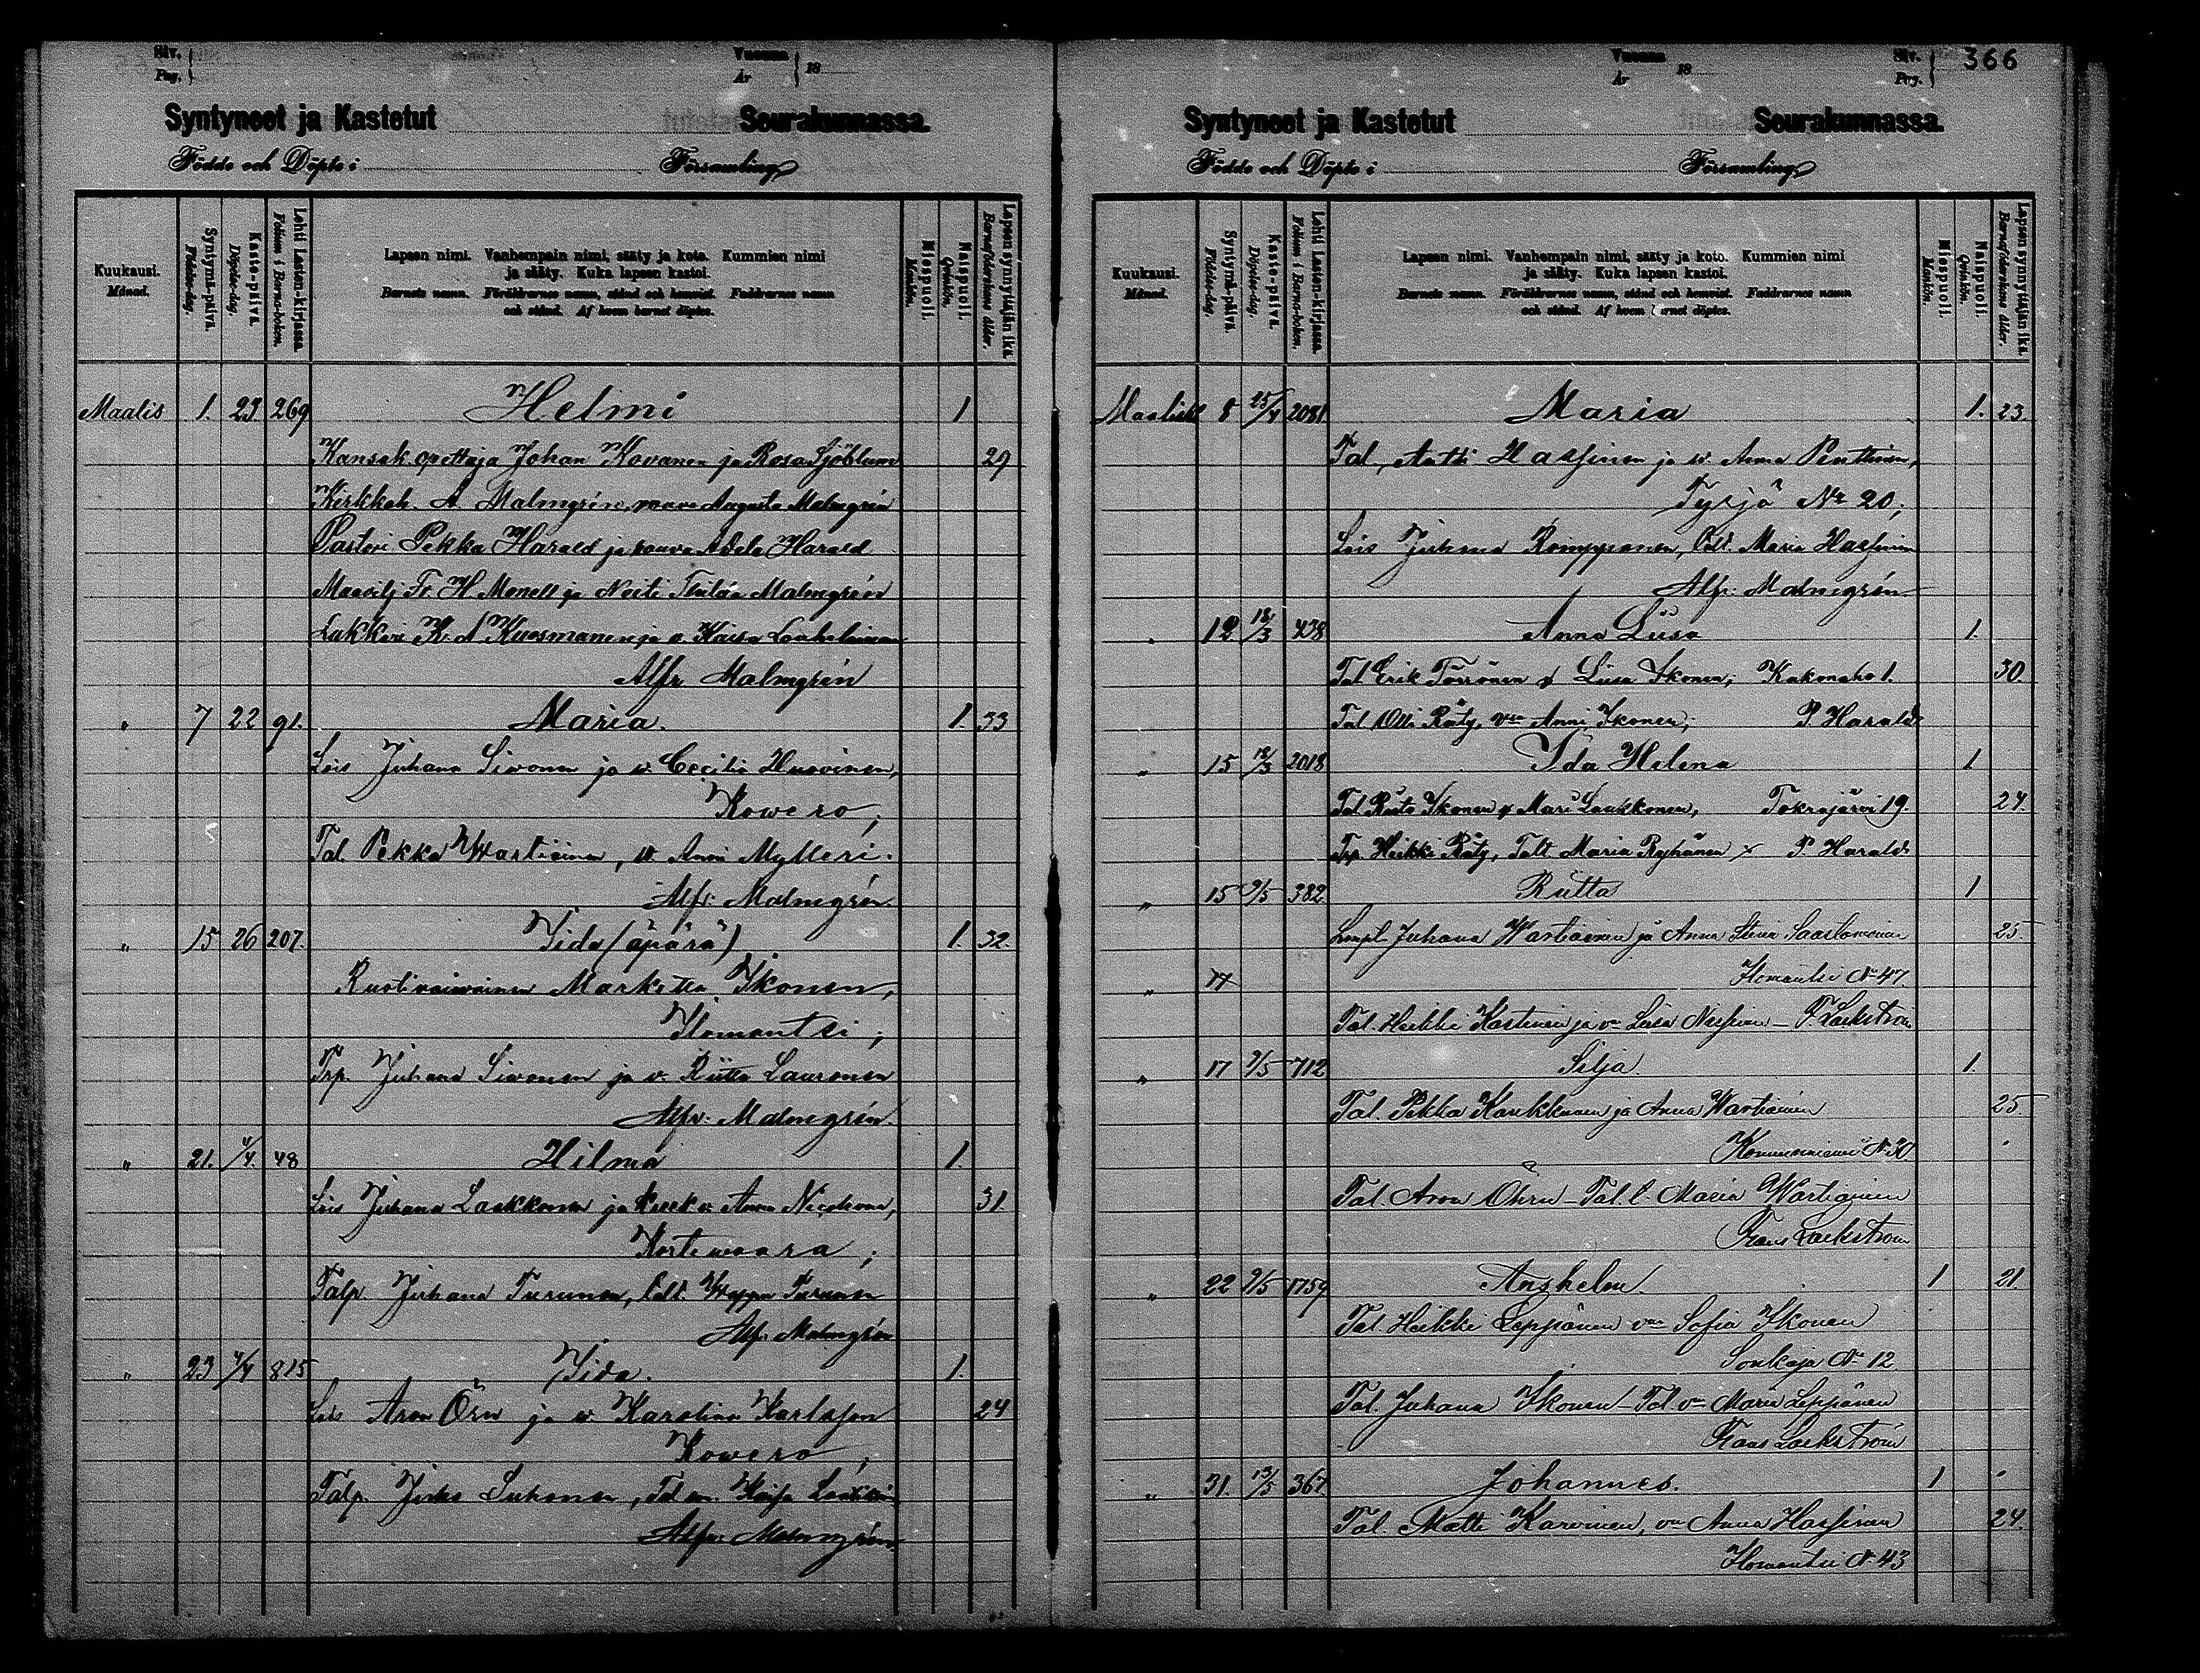 Siv.
Pag.
Vuonna
År
18
Syntyneet ja Kastetut Seurakunnassa.
Födde och Döpte i Församling
Kuukausi.
Månad.
Syntymä-päivä.
Födelse-dag.
Kaste-päivä.
Döpelse-dag.
Lehti Lasten-kirjassa.
Folium i Barna-boken.
Lapsen nimi. Vanhempain nimi, sääty ja koto. Kummien nimi
ja sääty. Kuka lapsen kastoi.
Barnets namn. Föräldrarnes namn, stånd och hemvist. Faddrarnes namn
och stånd. Af hvem barnet döptes.
Miespuoli.
Mankön.
Naispuoli.
Qvinkön.
Lapsen synnyttäjän ikä.
Barnaföderskans ålder.
Maalis 1. 23 269 Helmi 1
Kansak. opettaja Johan Kovanen ja Rosa Sjöblom 29
Kirkkoh. A. Malmgrén, rouva Augusta Malmgrén
Pastori Pekka Harald ja rouva Adele Harald
Fr. H. Monell ja Neiti Malmgrén
Lukkari K. A. Kuosmanen ja
Alfr. Malmgrén
" 7 22 91. Maria. 1. 33
Lois Juhana Siwonen ja v. Cecilia Huovinen,
Kowero;
Tal. Pekka Wartiainen, v. Anni Mylleri.
Alfr. Malmgrén.
" 15 26 207. Iida (äpärä) 1. 32.
Ruotivaivainen Marketta Ikonen,
Ilomantsi;
Trp. Juhana Siwonen ja v. Riitta Lauronen
Alfr. Malmgrén.
" 21. 4/4. 48 Hilma 1.
Lois Juhana Laakkonen ja Anna 31.
Kortewaara;
Talp. Juhana Turunen, Turunen
Alfr. Malmgrén
" 23 4/4 815 Iida. 1.
Lois Aron Örn ja v. Karolina Karlsson 24
Kowero,
Talp.
Alfr. Malmgrén.
Vuonna
År
18
Siv.
Pag.
366
Syntyneet ja Kastetut Seurakunnassa.
Födde och Döpte i Församling
Kuukausi.
Månad.
Syntymä-päivä.
Födelse-dag.
Kaste-päivä.
Döpelse-dag.
Lehti Lasten-kirjassa.
Folium i Barna-boken.
Lapsen nimi. Vanhempain nimi, sääty ja koto. Kummien nimi
ja sääty. Kuka lapsen kastoi.
Barnets namn. Föräldrarnes namn, stånd och hemvist. Faddrarnes namn
och stånd. Af hvem barnet döptes.
Miespuoli.
Mankön.
Naispuoli.
Qvinkön.
Lapsen synnyttäjän ikä.
Barnaföderskans ålder.
Maalisk 8 25/4 2081 Maria 1. 23.
Tal. Antti Hassinen ja v. Anna Penttinen,
Tyrjä No 20;
Lois Juhana Romppanen, Maria Hassinen
Alfr. Malmgrén
" 12 18/3 438 Anna Liisa 1.
Tal. Erik Törrönen & Liisa Ikonen; Kakonaho 1. 30.
Tal. Olli Räty, Anni Ikonen; P. Harald
" 15 18/3 2018 Ida Helena 1.
Tal. Risto Ikonen & Mari Laukkonen, Tokrajärvi 19. 27.
Trp. Heikki Räty, Talt. Maria Ryhänen × P. Harald
" 15 9/5 382 Riitta 1
Juhana Wartiainen ja Anna Stiina Saastamoinen 25.
" 17 Ilomantsi No 47.
Tal. Heikki Kastinen ja vo Liisa Nissinen - F. Lackström
" 17 9/5 712 Silja. 1.
Tal. Pekka Kaukkonen ja Anna Wartiainen 25
No 30
Tal. Aron Öhrn - Tal. t. Maria Wartiainen
Frans Lackström
" 22 9/5 1759 Anshelm. 1 21.
Tal. Heikki Leppänen vmo Sofia Ikonen
Sonkaja No 12
Tal. Juhana Ikonen - Tal. vo Maria Leppänen
Frans Lackström
" 31. 13/5 367 Johannes. 1
Tal. Matti Karvinen, vo Anna Hassinen 24.
Ilomantsi No 43